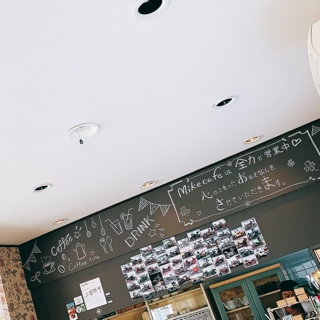 Mike cafeは 全力で営業中♡
心のこもったおもてなしを
させていただきます。
COFFEE
Coffee Time
DRINK